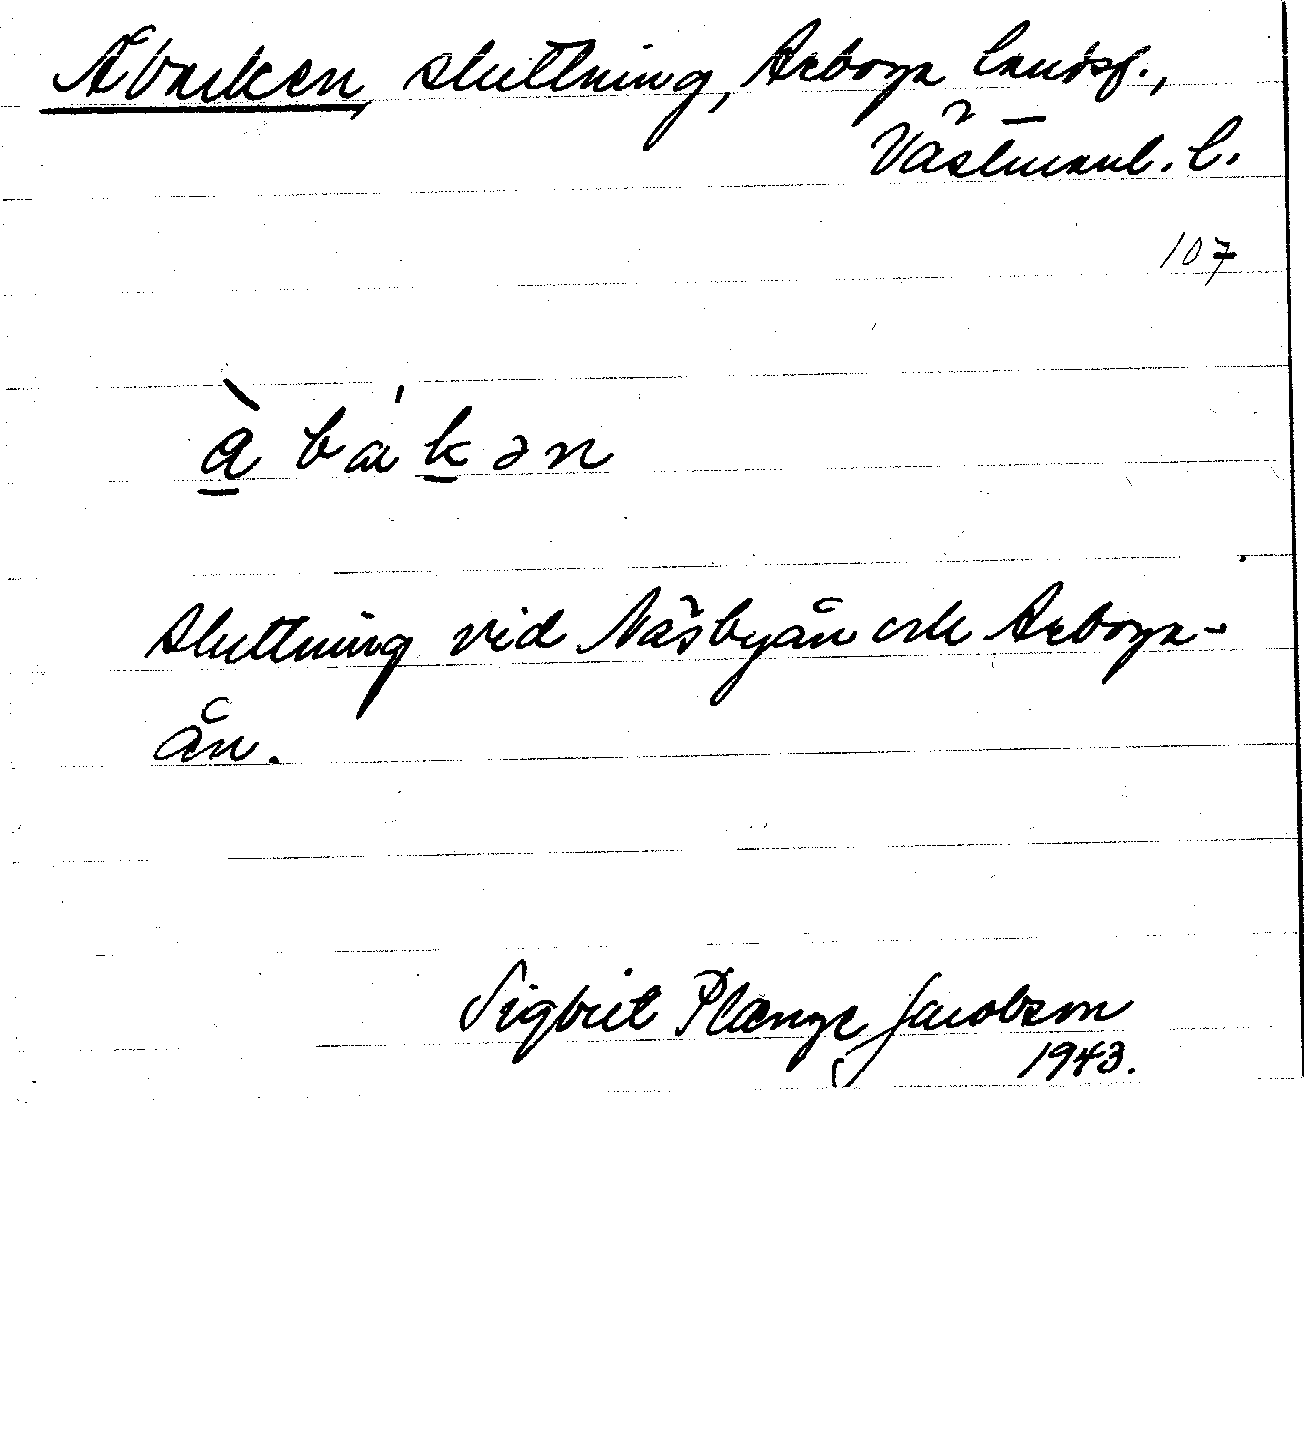 Åbacken, sluttning, Arboga landsf.,
Västmanl. l.
107
å̀ ba'kən
Sluttning vid Näsbyån och Arboga-
ån.
Sigbrit Plænge Jacobson
1943.